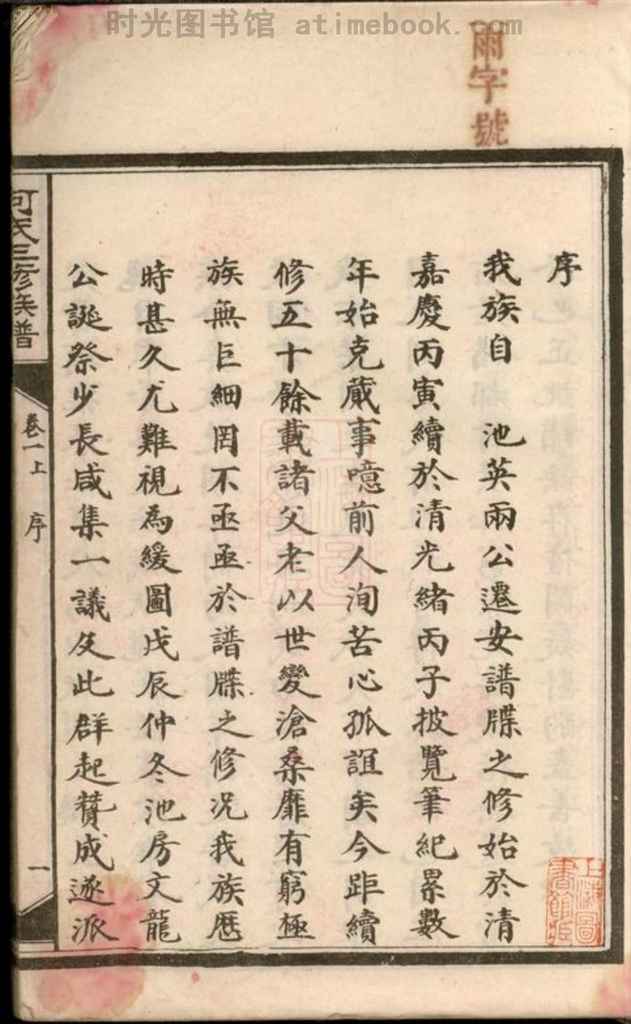 时光图书馆 atimebook.com
雨字號
序
我族自 池英兩公遷安譜牒之修始於清
嘉慶丙寅續於清光緒丙子披覽筆紀累數
年始克蕆事噫前人洵苦心孤詣矣今距續
修五十餘載諸父老以世變滄桑靡有窮極
族無巨細罔不亟亟於譜牒之修況我族歷
時甚久尤難視為緩圖戊辰仲冬池房文龍
公誕祭少長咸集一議及此群起贊成遂派
何氏三修族譜
卷一上 序
一
上海圖書館藏